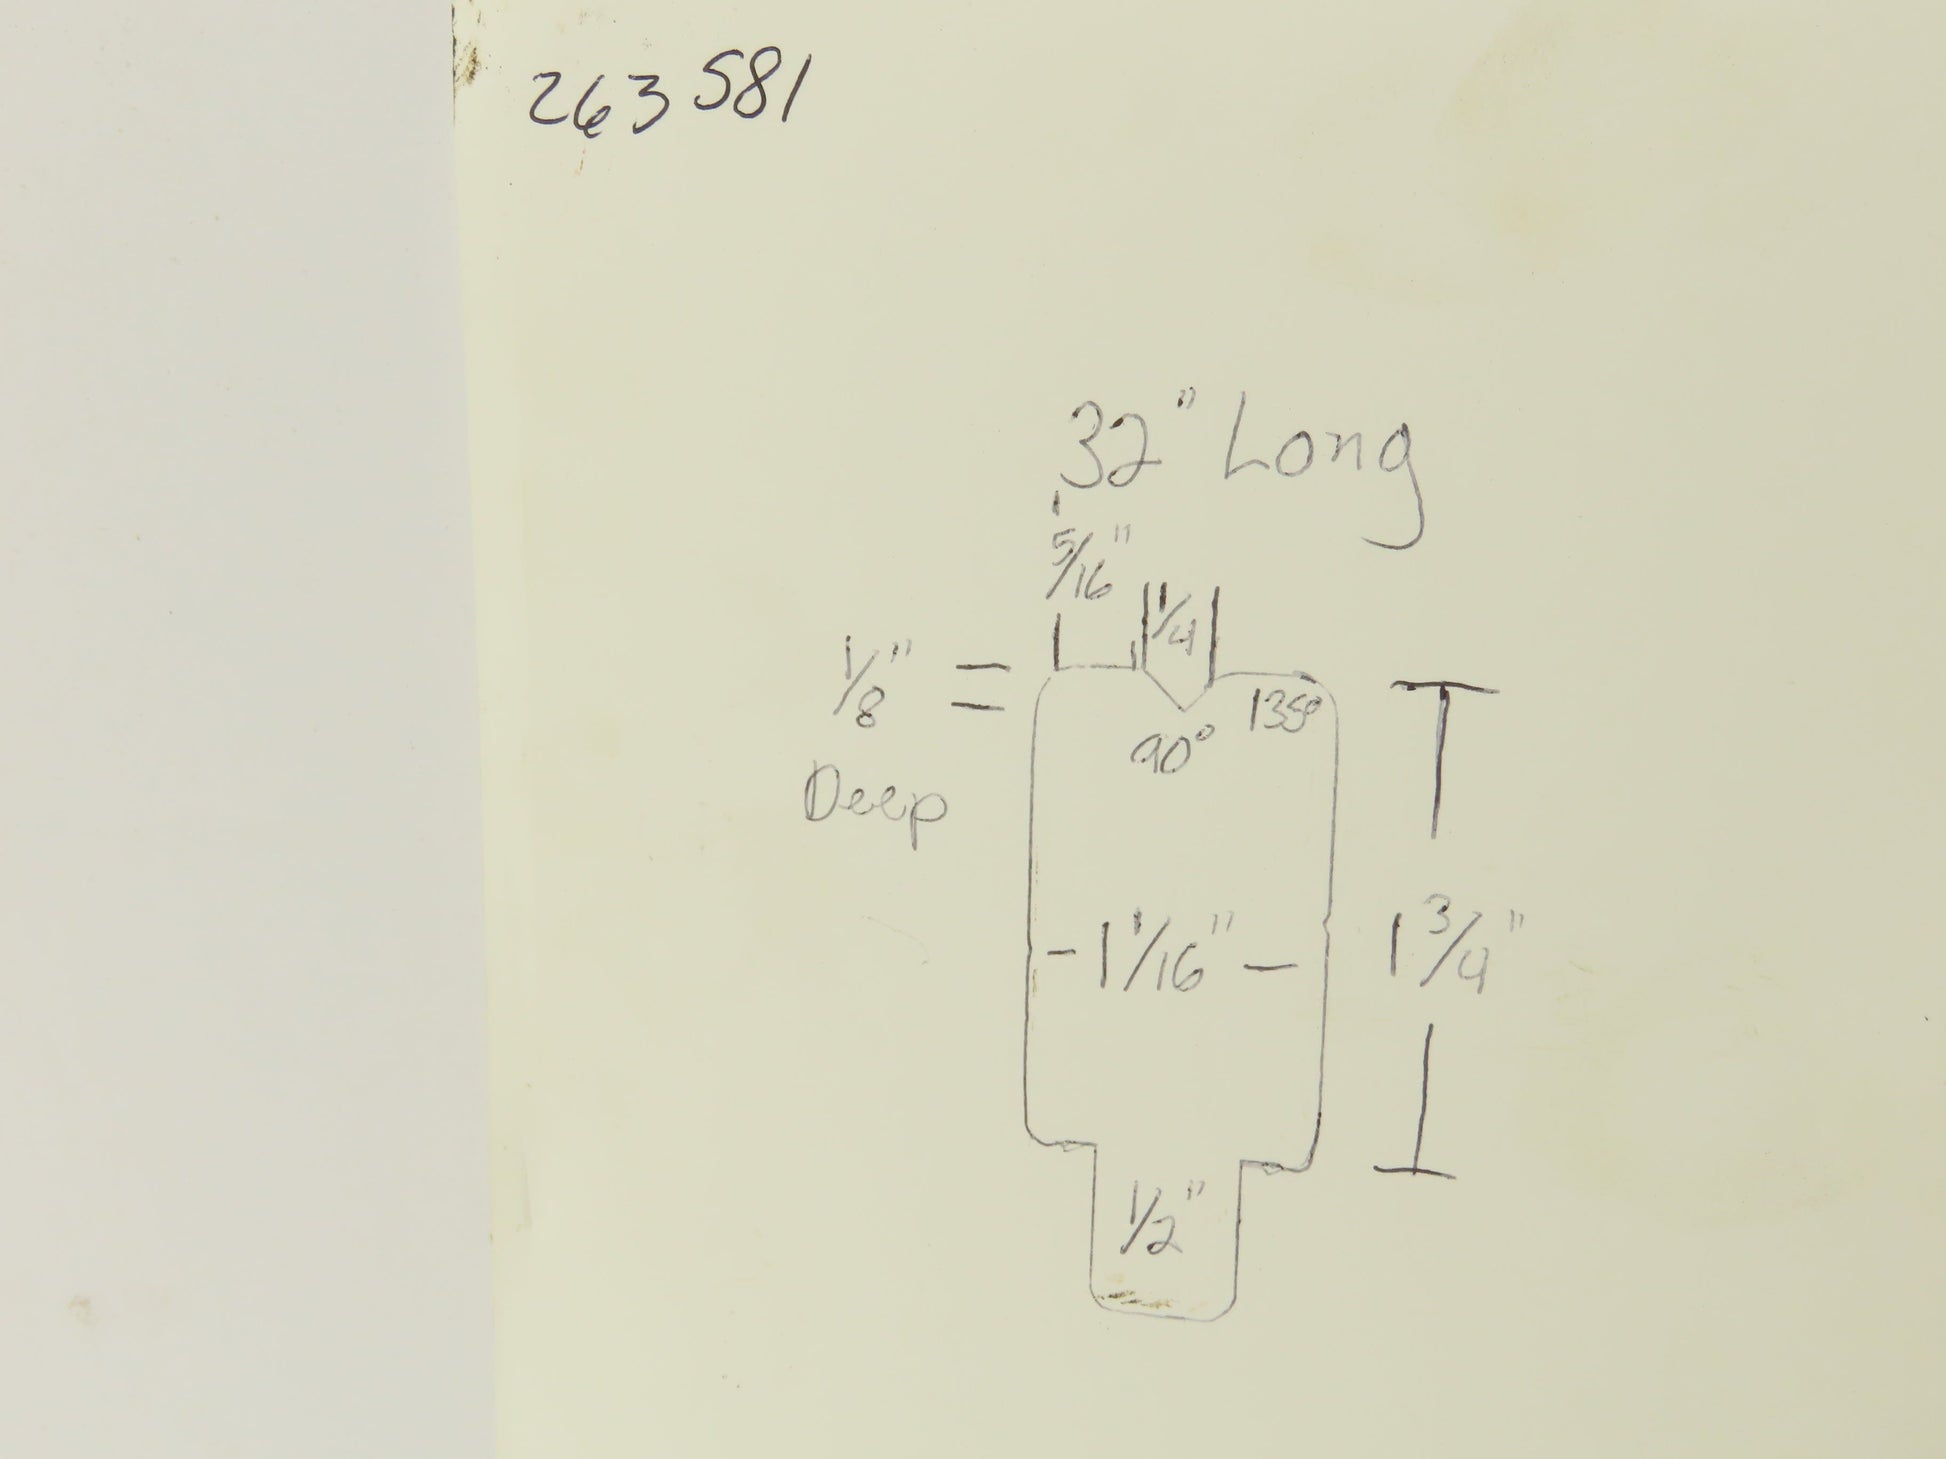 263581
32" Long
5/16"
1/4
1/8"
Deep
135°
90°
1 1/16"
1 3/4"
1/2"